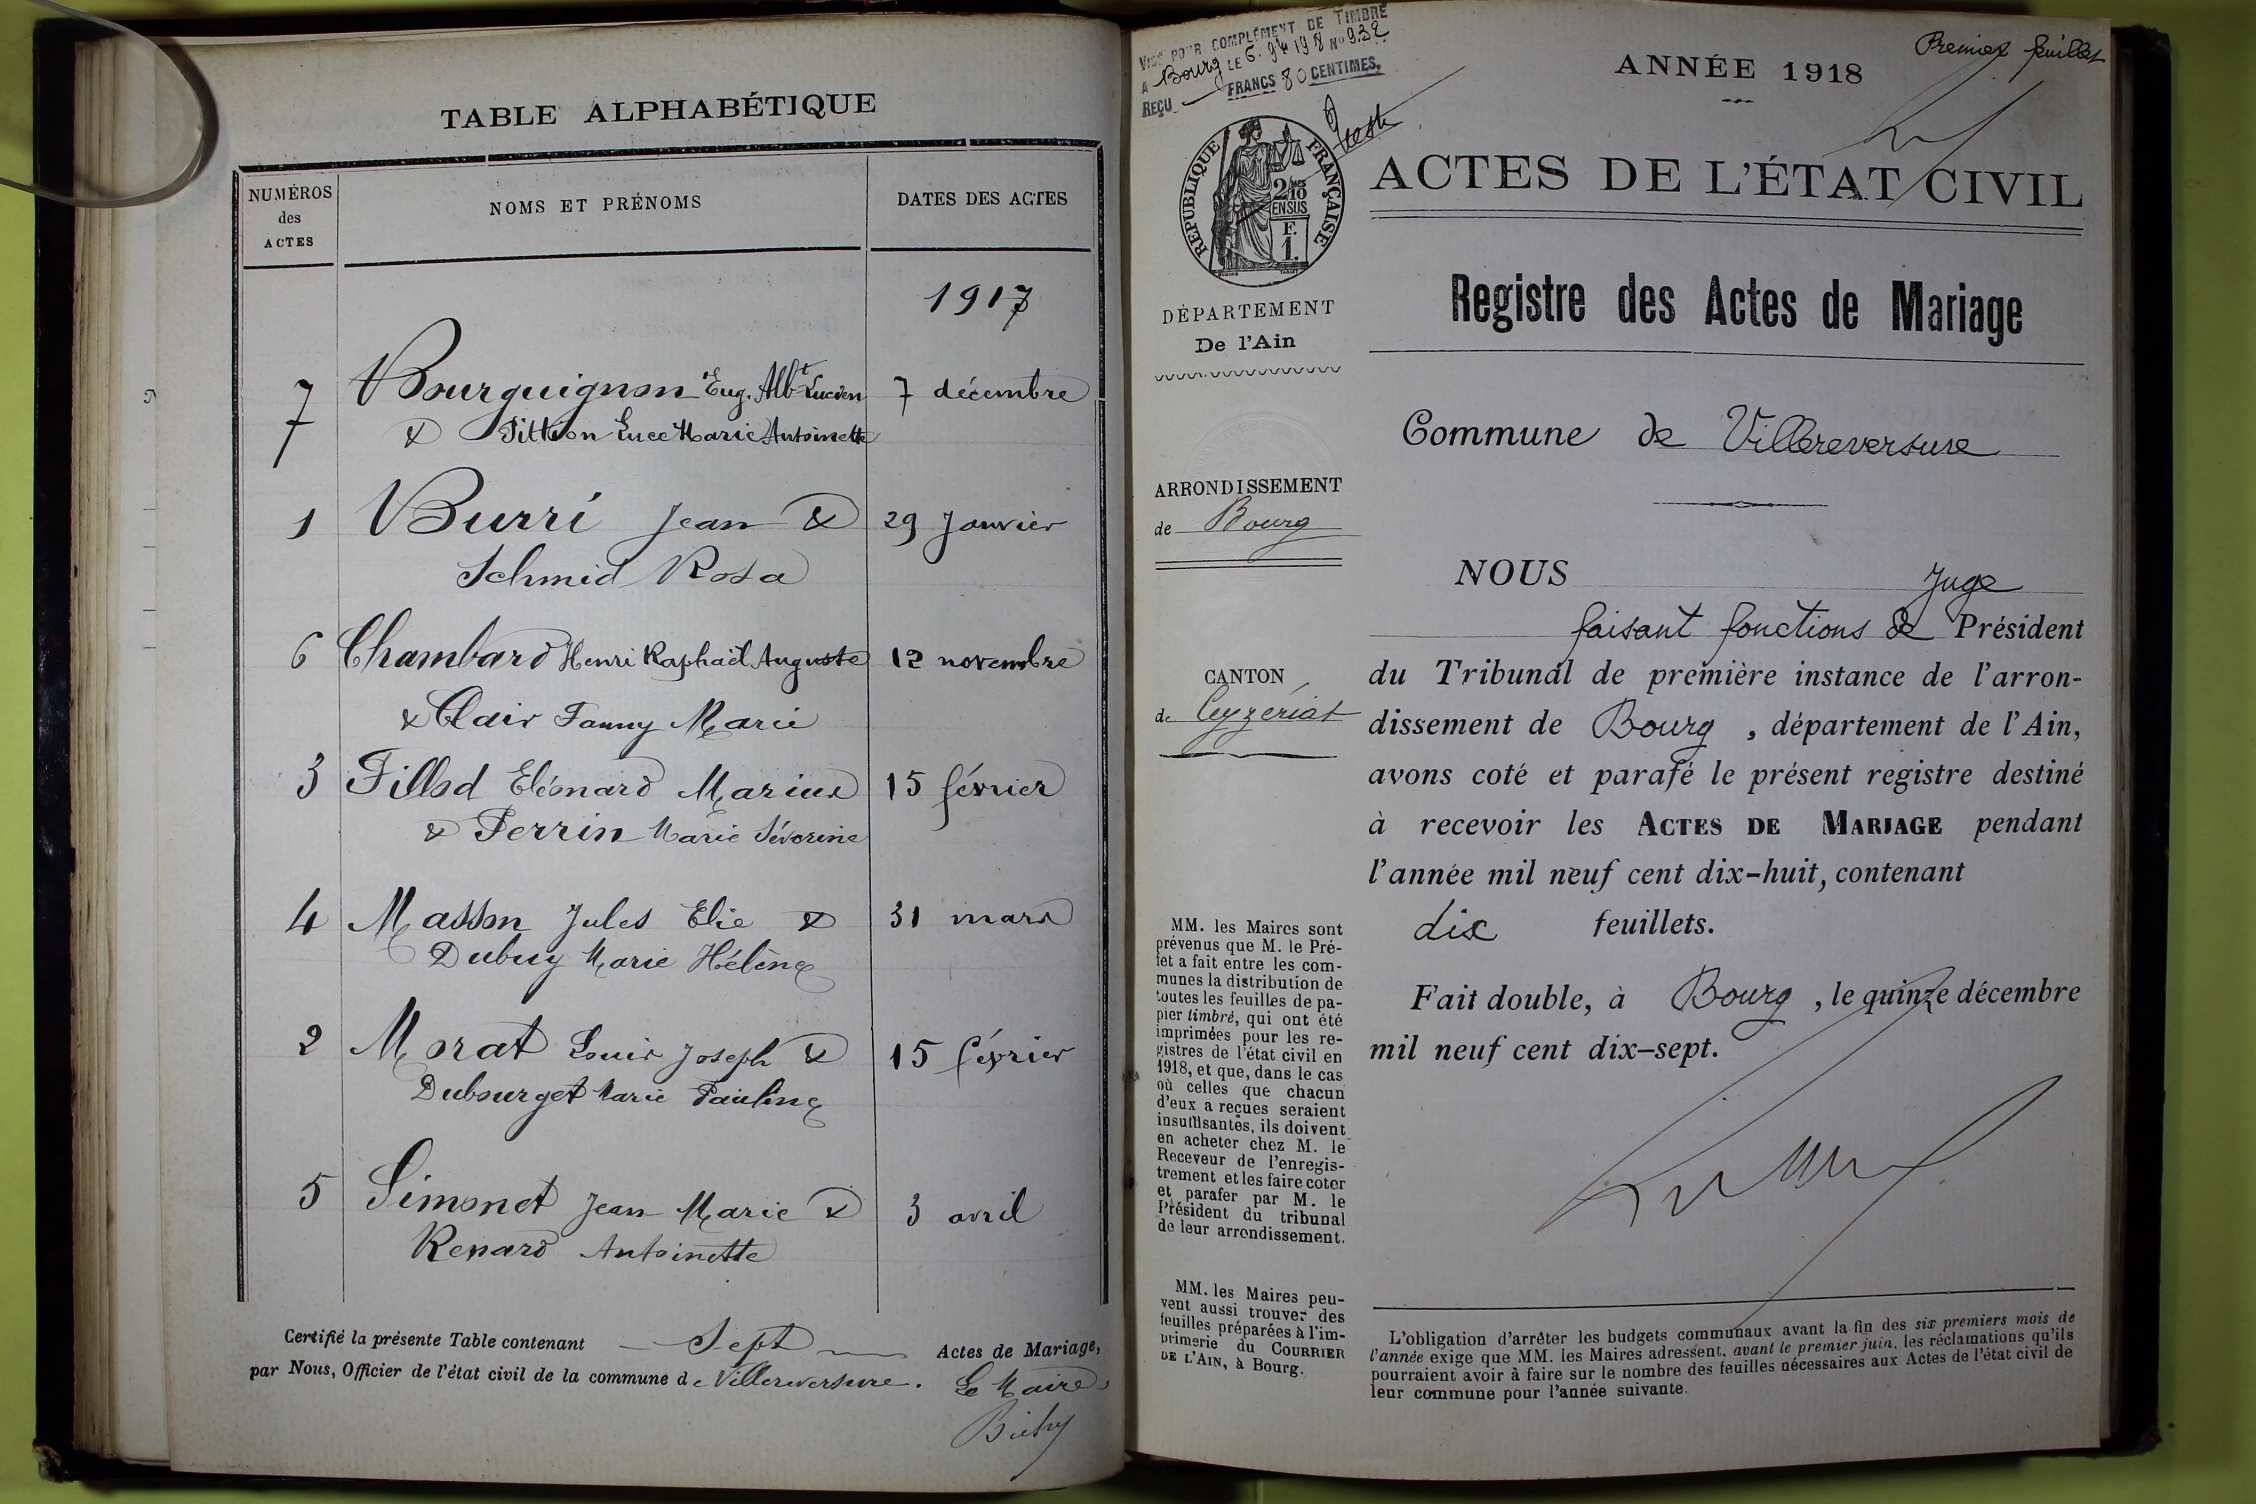 TABLE ALPHABÉTIQUE
NUMÉROS
des
ACTES
NOMS ET PRÉNOMS
DATES DES ACTES
1917
7 Bourguignon Eug. Albt Lucien 7 décembre
7 & Pitton Luce Marie Antoinette
1 Burri Jean & 29 Janvier
Schmid Rosa
6 Chambard Henri Raphaël Auguste 12 novembre
& Clair Fanny Marie
3 Fillod Eléonard Marius 15 février
& Perrin Marie Séverine
4 Masson Jules Elie & 31 mars
Dubuy Marie Hélène
2 Morat Louis Joseph & 15 février
Dubourget Marie Pauline
5 Simonet Jean Marie & 3 avril
Renard Antoinette
Certifié la présente Table contenant Sept Actes de Mariage,
par Nous, Officier de l'état civil de la commune de Villereversure. Le Maire
VISÉ POUR COMPLÉMENT DE TIMBRE
A Bourg LE 6. 9bre 1918 No 932
REÇU FRANCS 80 CENTIMES.
Premier feuillet
RÉPUBLIQUE FRANÇAISE
2/10mes
EN SUS
F.
1.
DÉPARTEMENT
De l'Ain
ARRONDISSEMENT
de Bourg
CANTON
de Ceyzériat
MM. les Maires sont
prévenus que M. le Pré-
fet a fait entre les com-
munes la distribution de
toutes les feuilles de pa-
pier timbré, qui ont été
imprimées pour les re-
gistres de l'état civil en
1918, et que, dans le cas
où celles que chacun
d'eux a reçues seraient
insuffisantes, ils doivent
en acheter chez M. le
Receveur de l'enregis-
trement et les faire coter
et parafer par M. le
Président du tribunal
de leur arrondissement.
MM. les Maires peu-
vent aussi trouver des
feuilles préparées à l'im-
primerie du COURRIER
DE L'AIN, à Bourg.
ANNÉE 1918
ACTES DE L'ÉTAT CIVIL
Registre des Actes de Mariage
Commune de Villereversure
NOUS Juge
faisant fonctions de Président
du Tribunal de première instance de l'arron-
dissement de Bourg , département de l'Ain,
avons coté et parafé le présent registre destiné
à recevoir les ACTES DE MARIAGE pendant
l'année mil neuf cent dix-huit, contenant
dix feuillets.
Fait double, à Bourg , le quinze décembre
mil neuf cent dix-sept.
L'obligation d'arrêter les budgets communaux avant la fin des six premiers mois de
l'année exige que MM. les Maires adressent, avant le premier juin, les réclamations qu'ils
pourraient avoir à faire sur le nombre des feuilles nécessaires aux Actes de l'état civil de
leur commune pour l'année suivante.